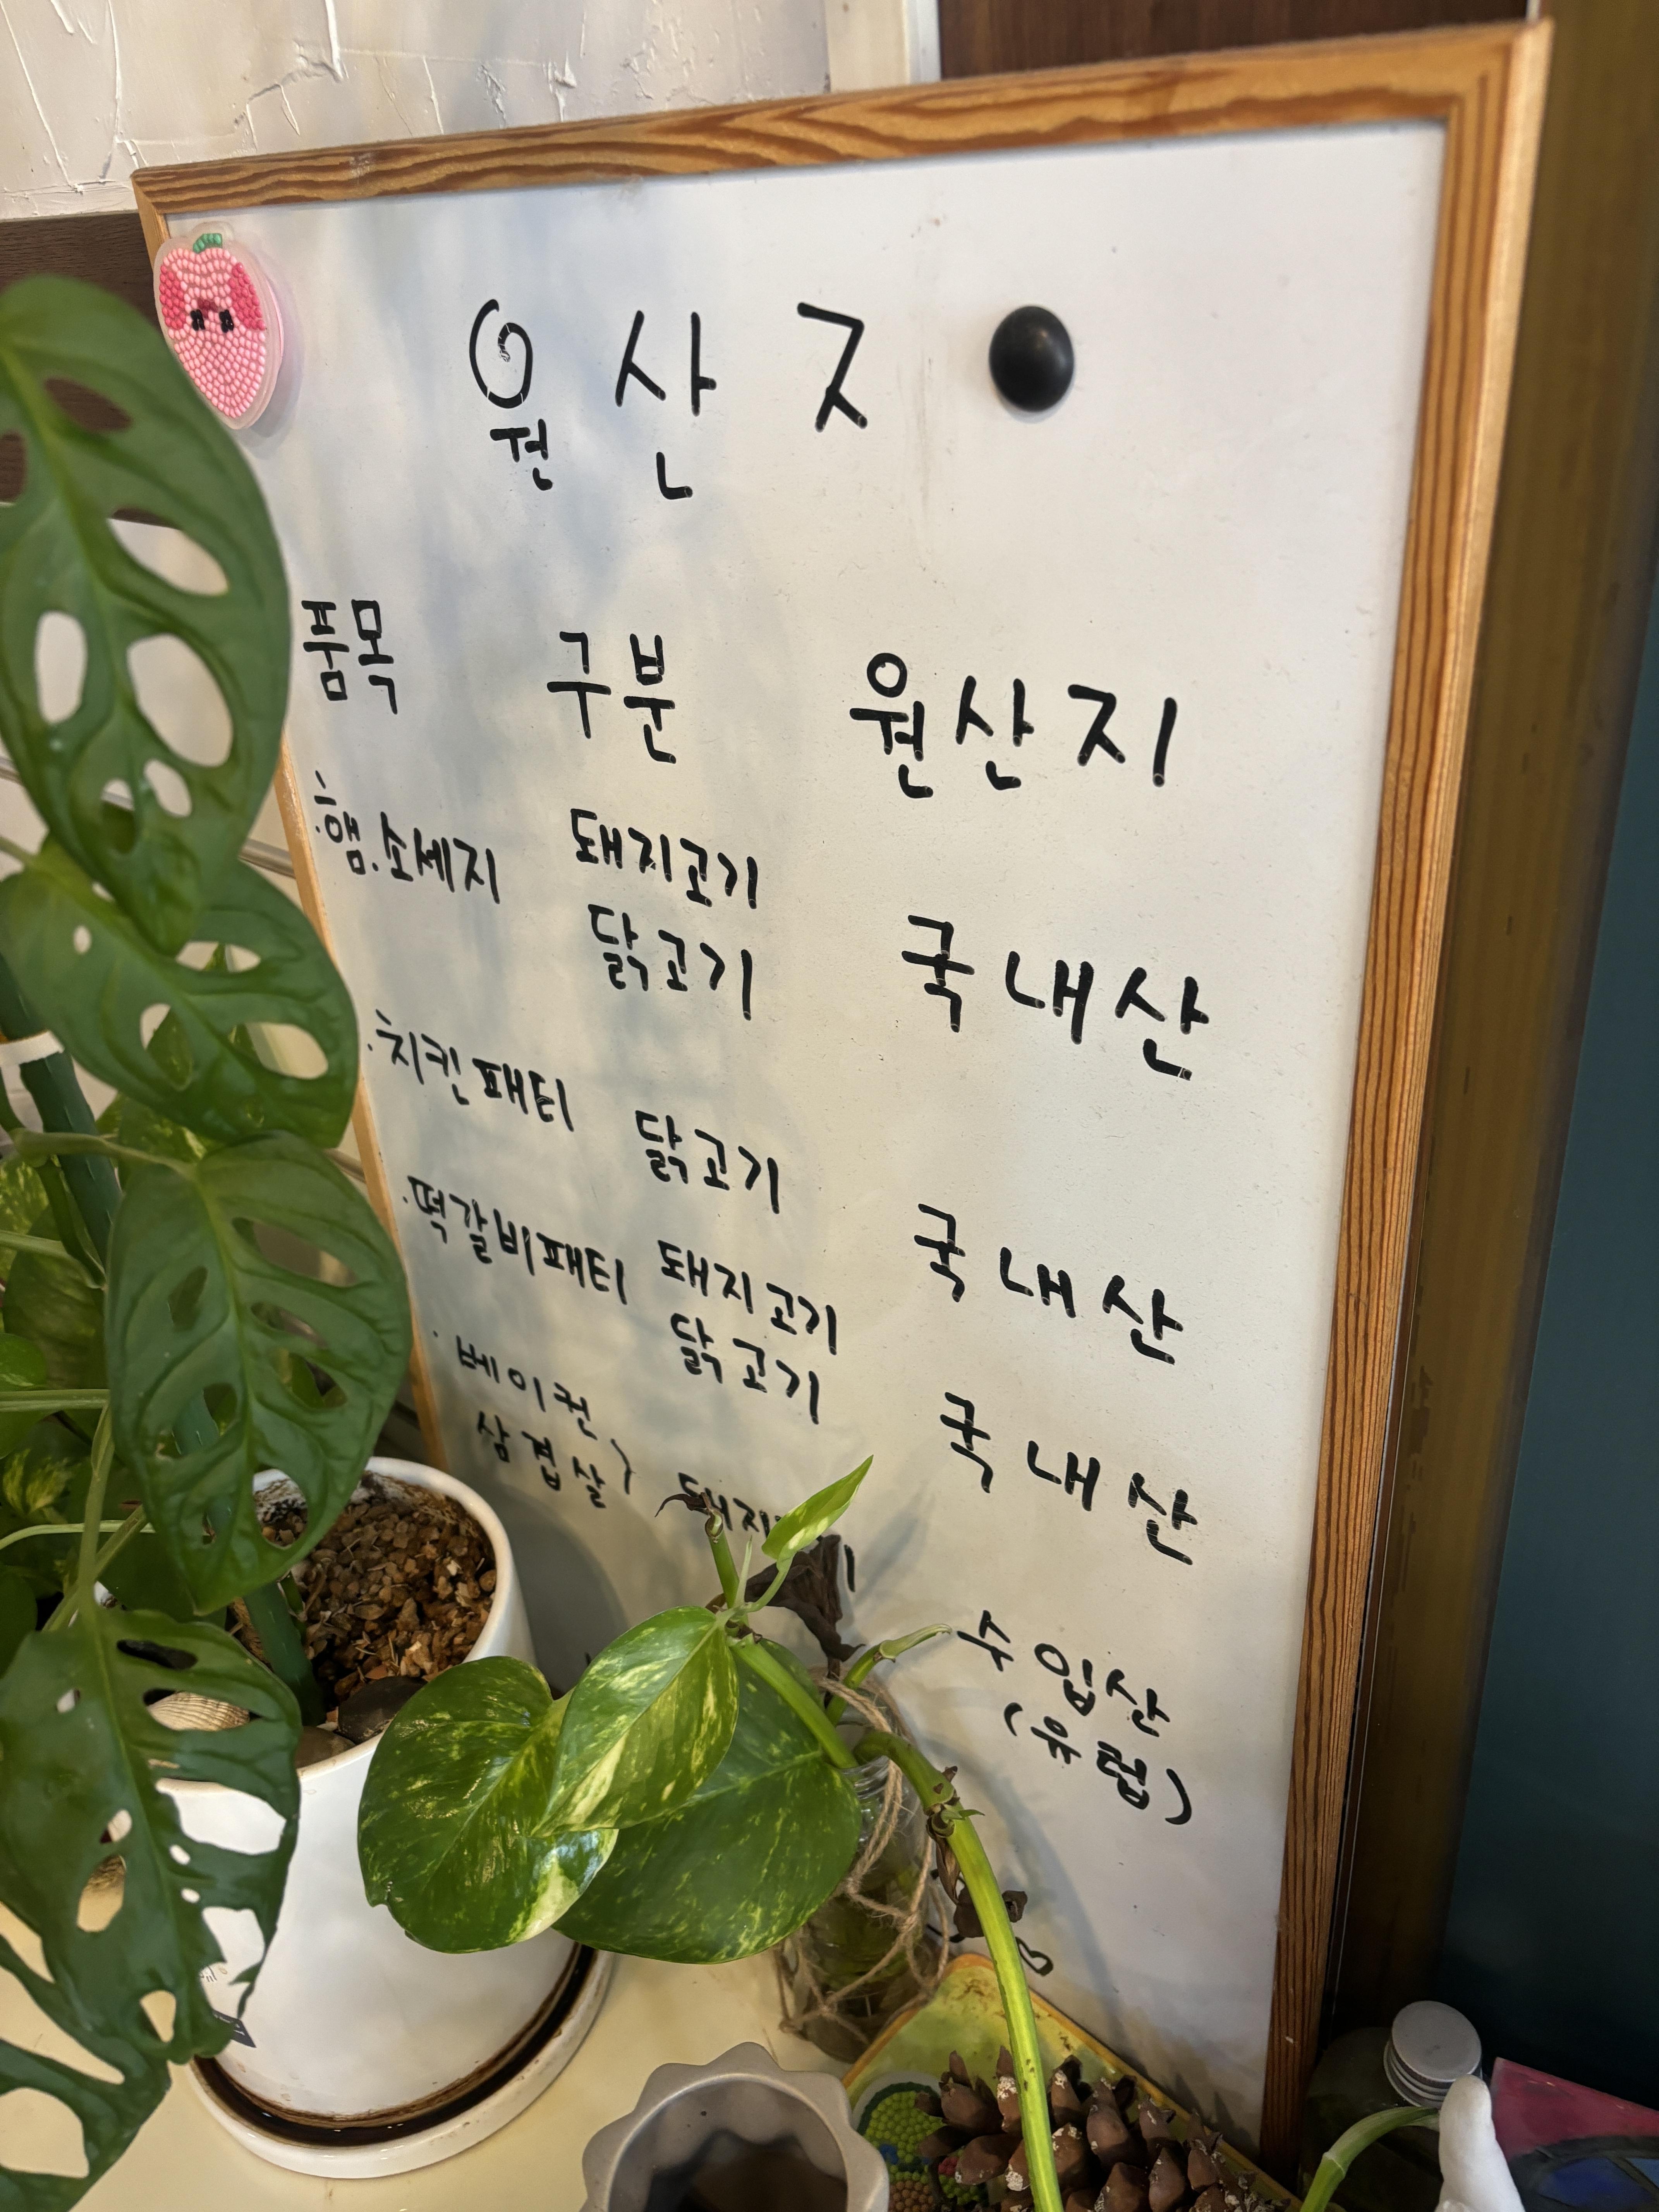 원산지
품목 구분 원산지
·햄.소세지 돼지고기
닭고기 국내산
·치킨패티 닭고기 국내산
·떡갈비패티 돼지고기
닭고기 국내산
·베이컨
삼겹살)
수입산
(유럽)